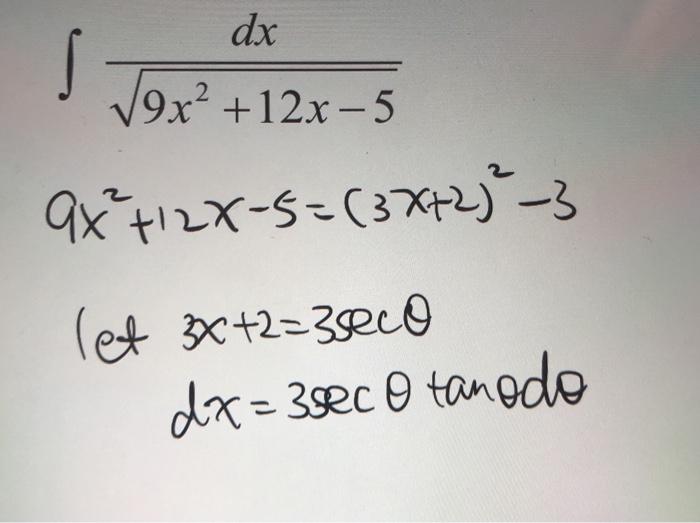 ∫ dx / √(9x² + 12x − 5)
9x²+12x-5=(3x+2)²-3
let 3x+2=3secθ
dx=3secθ tanθdθ